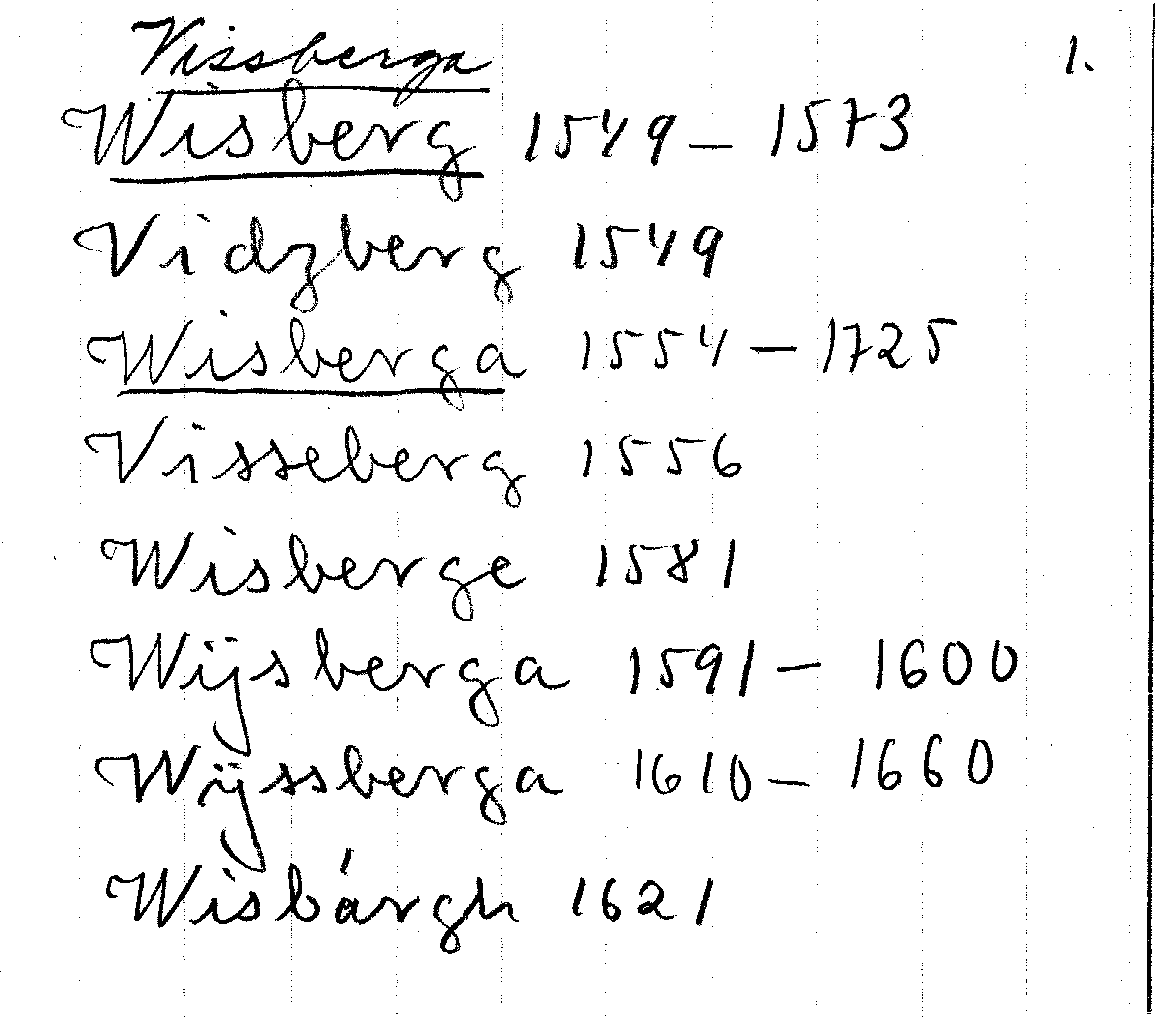 Vissberga 1.
Wisberg 1549 – 1573
Vidzberg 1549
Wisberga 1554 – 1725
Visseberg 1556
Wisberge 1581
Wijsberga 1591 – 1600
Wijssberga 1610 – 1660
Wisbárgh 1621